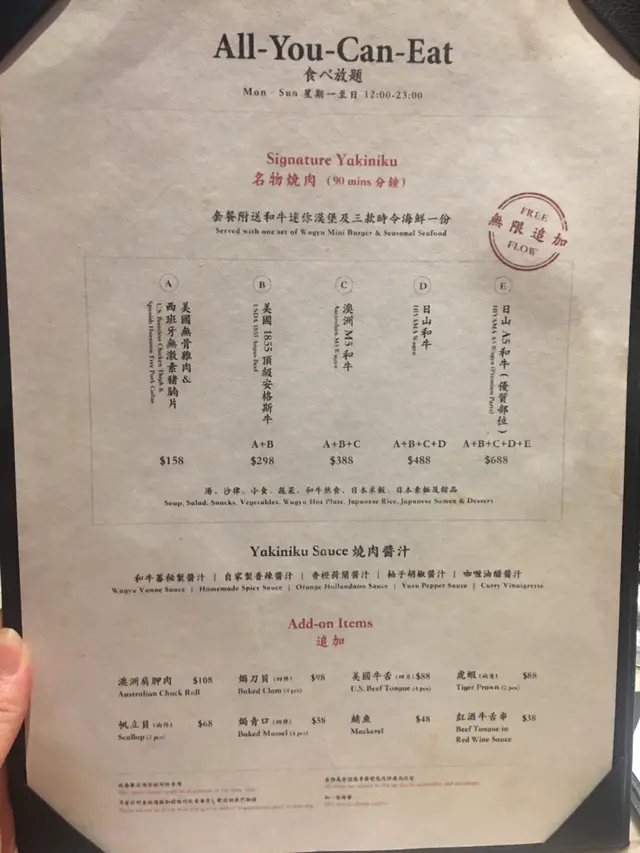 All-You-Can-Eat
食べ放題
Mon - Sun 星期一至日 12:00-23:00
Signature Yakiniku
名物燒肉 (90 mins 分鐘)
套餐附送和牛迷你漢堡及三款時令海鮮一份
Served with one set of Wagyu Mini Burger & Seasonal Seafood
FREE
無限追加
FLOW
A
美國無骨雞肉 &
西班牙無激素豬腩片
U.S. Boneless Chicken Thigh &
Spanish Hormone Free Pork Collar
$158
B
美國 1855 頂級安格斯牛
USDA 1855 Angus Beef
A+B
$298
C
澳洲 M5 和牛
Australian M5 Wagyu
A+B+C
$388
D
日山和牛
HIYAMA Wagyu
A+B+C+D
$488
E
日山 A5 和牛 (優質部位)
HIYAMA A5 Wagyu (Premium Parts)
A+B+C+D+E
$688
湯、沙律、小食、蔬菜、和牛熱食、日本米飯、日本素麵及甜品
Soup, Salad, Snacks, Vegetables, Wagyu Hot Plate, Japanese Rice, Japanese Somen & Dessert
Yakiniku Sauce 燒肉醬汁
和牛蕃秘製醬汁 | 自家製香辣醬汁 | 香橙荷蘭醬汁 | 柚子胡椒醬汁 | 咖喱油醋醬汁
Wagyu Vanne Sauce | Homemade Spicy Sauce | Orange Hollandaise Sauce | Yuzu Pepper Sauce | Curry Vinaigrette
Add-on Items
追加
澳洲肩胛肉 $108
Australian Chuck Roll
焗刀貝 (四件) $98
Baked Clam (4 pcs)
美國牛舌 (四片) $88
U.S. Beef Tongue (4 pcs)
虎蝦 (兩隻) $88
Tiger Prawn (2 pcs)
帆立貝 (兩件) $68
Scallop (2 pcs)
焗青口 (四件) $58
Baked Mussel (4 pcs)
鯖魚 $48
Mackerel
紅酒牛舌串 $38
Beef Tongue in
Red Wine Sauce